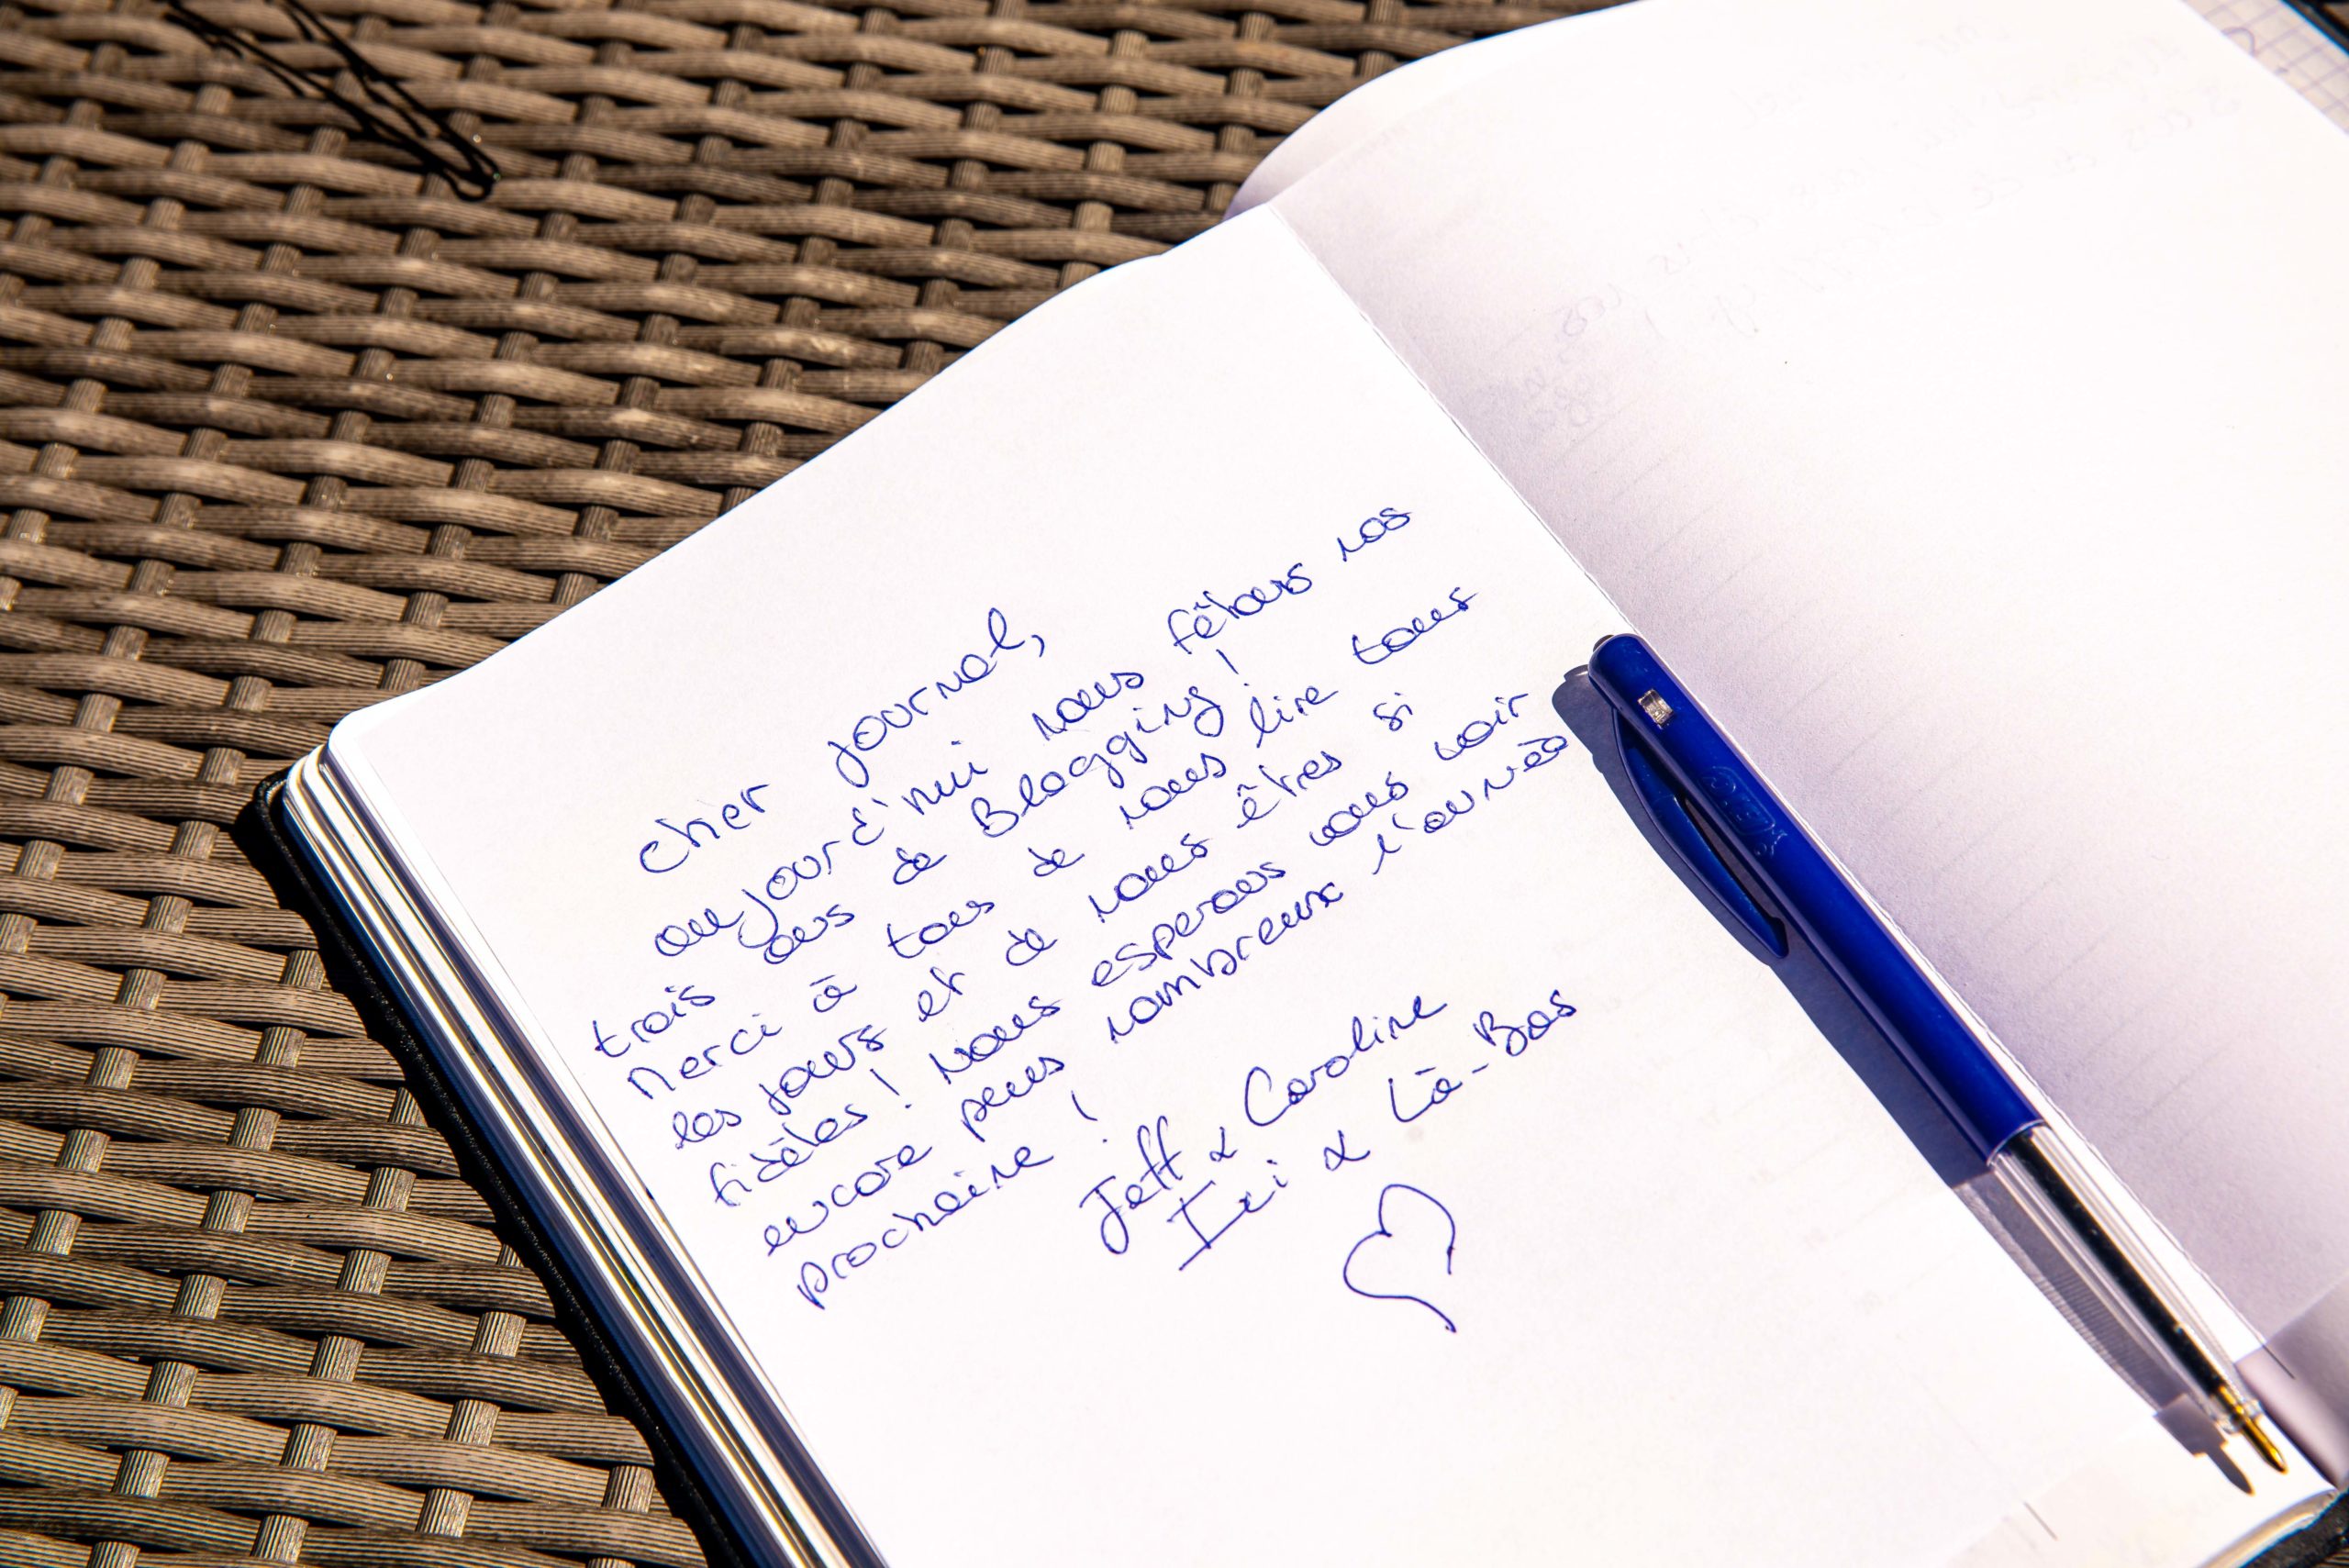 Cher journal,
aujourd'hui nous fêtons nos
trois ans de Blogging !
Merci à tous de nous lire tous
les jours et de nous êtres si
fidèles ! Nous esperons vous voir
encore plus nombreux l'année
prochaine !
Jeff & Caroline
Ici & Là-Bas
BIC